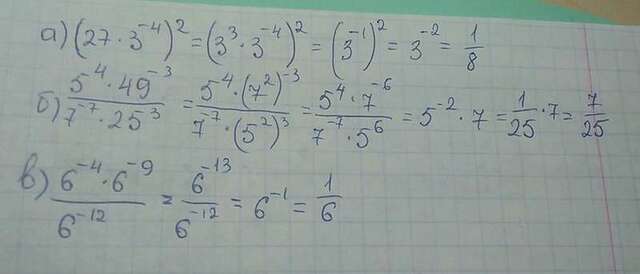 а) (27 · 3⁻⁴)² = (3³ · 3⁻⁴)² = (3⁻¹)² = 3⁻² = 1/8
б) (5⁴ · 49⁻³)/(7⁻⁷ · 25³) = (5⁴ · (7²)⁻³)/(7⁻⁷ · (5²)³) = (5⁴ · 7⁻⁶)/(7⁻⁷ · 5⁶) = 5⁻² · 7 = 1/25 · 7 = 7/25
в) (6⁻⁴ · 6⁻⁹)/6⁻¹² = 6⁻¹³/6⁻¹² = 6⁻¹ = 1/6